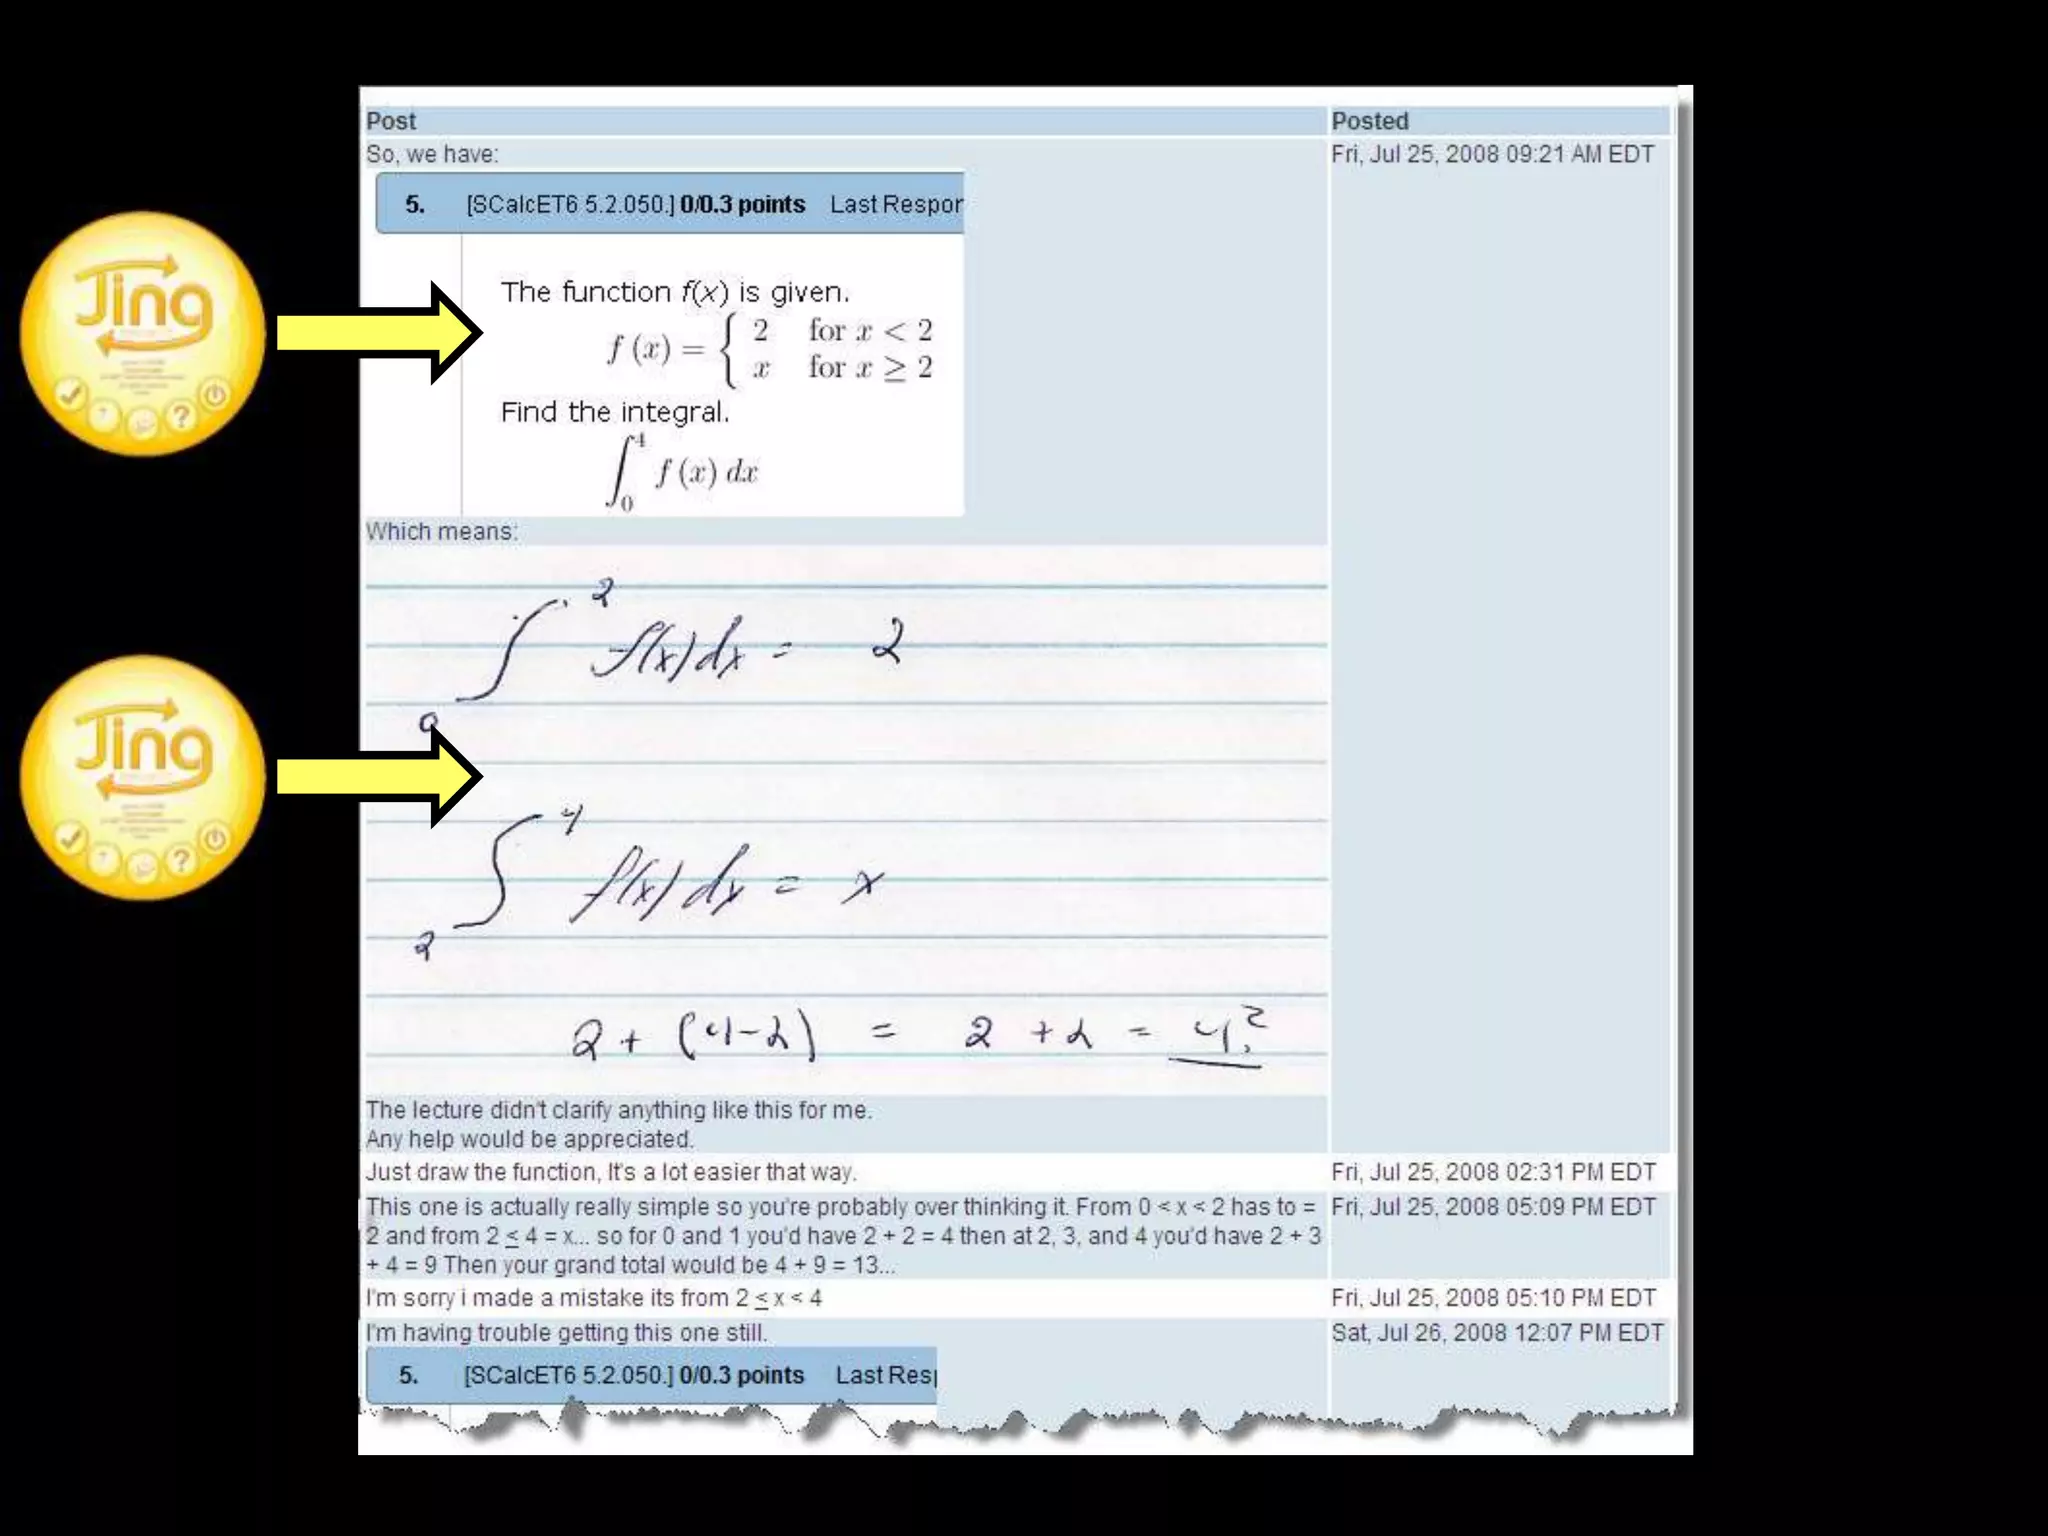 Post Posted
So, we have: Fri, Jul 25, 2008 09:21 AM EDT
5. [SCalcET6 5.2.050.] 0/0.3 points Last Respor
Jing
The function f(x) is given.
f (x) = { 2 for x < 2
x for x ≥ 2
Find the integral.
∫₀⁴ f (x) dx
Which means:
∫₀² f(x)dx = 2
Jing
∫₂⁴ f(x)dx = x
2 + (4-2) = 2 + 2 = 4?
The lecture didn't clarify anything like this for me.
Any help would be appreciated.
Just draw the function, It's a lot easier that way. Fri, Jul 25, 2008 02:31 PM EDT
This one is actually really simple so you're probably over thinking it. From 0 < x < 2 has to = Fri, Jul 25, 2008 05:09 PM EDT
2 and from 2 ≤ 4 = x... so for 0 and 1 you'd have 2 + 2 = 4 then at 2, 3, and 4 you'd have 2 + 3
+ 4 = 9 Then your grand total would be 4 + 9 = 13...
I'm sorry i made a mistake its from 2 ≤ x < 4 Fri, Jul 25, 2008 05:10 PM EDT
I'm having trouble getting this one still. Sat, Jul 26, 2008 12:07 PM EDT
5. [SCalcET6 5.2.050.] 0/0.3 points Last Resp